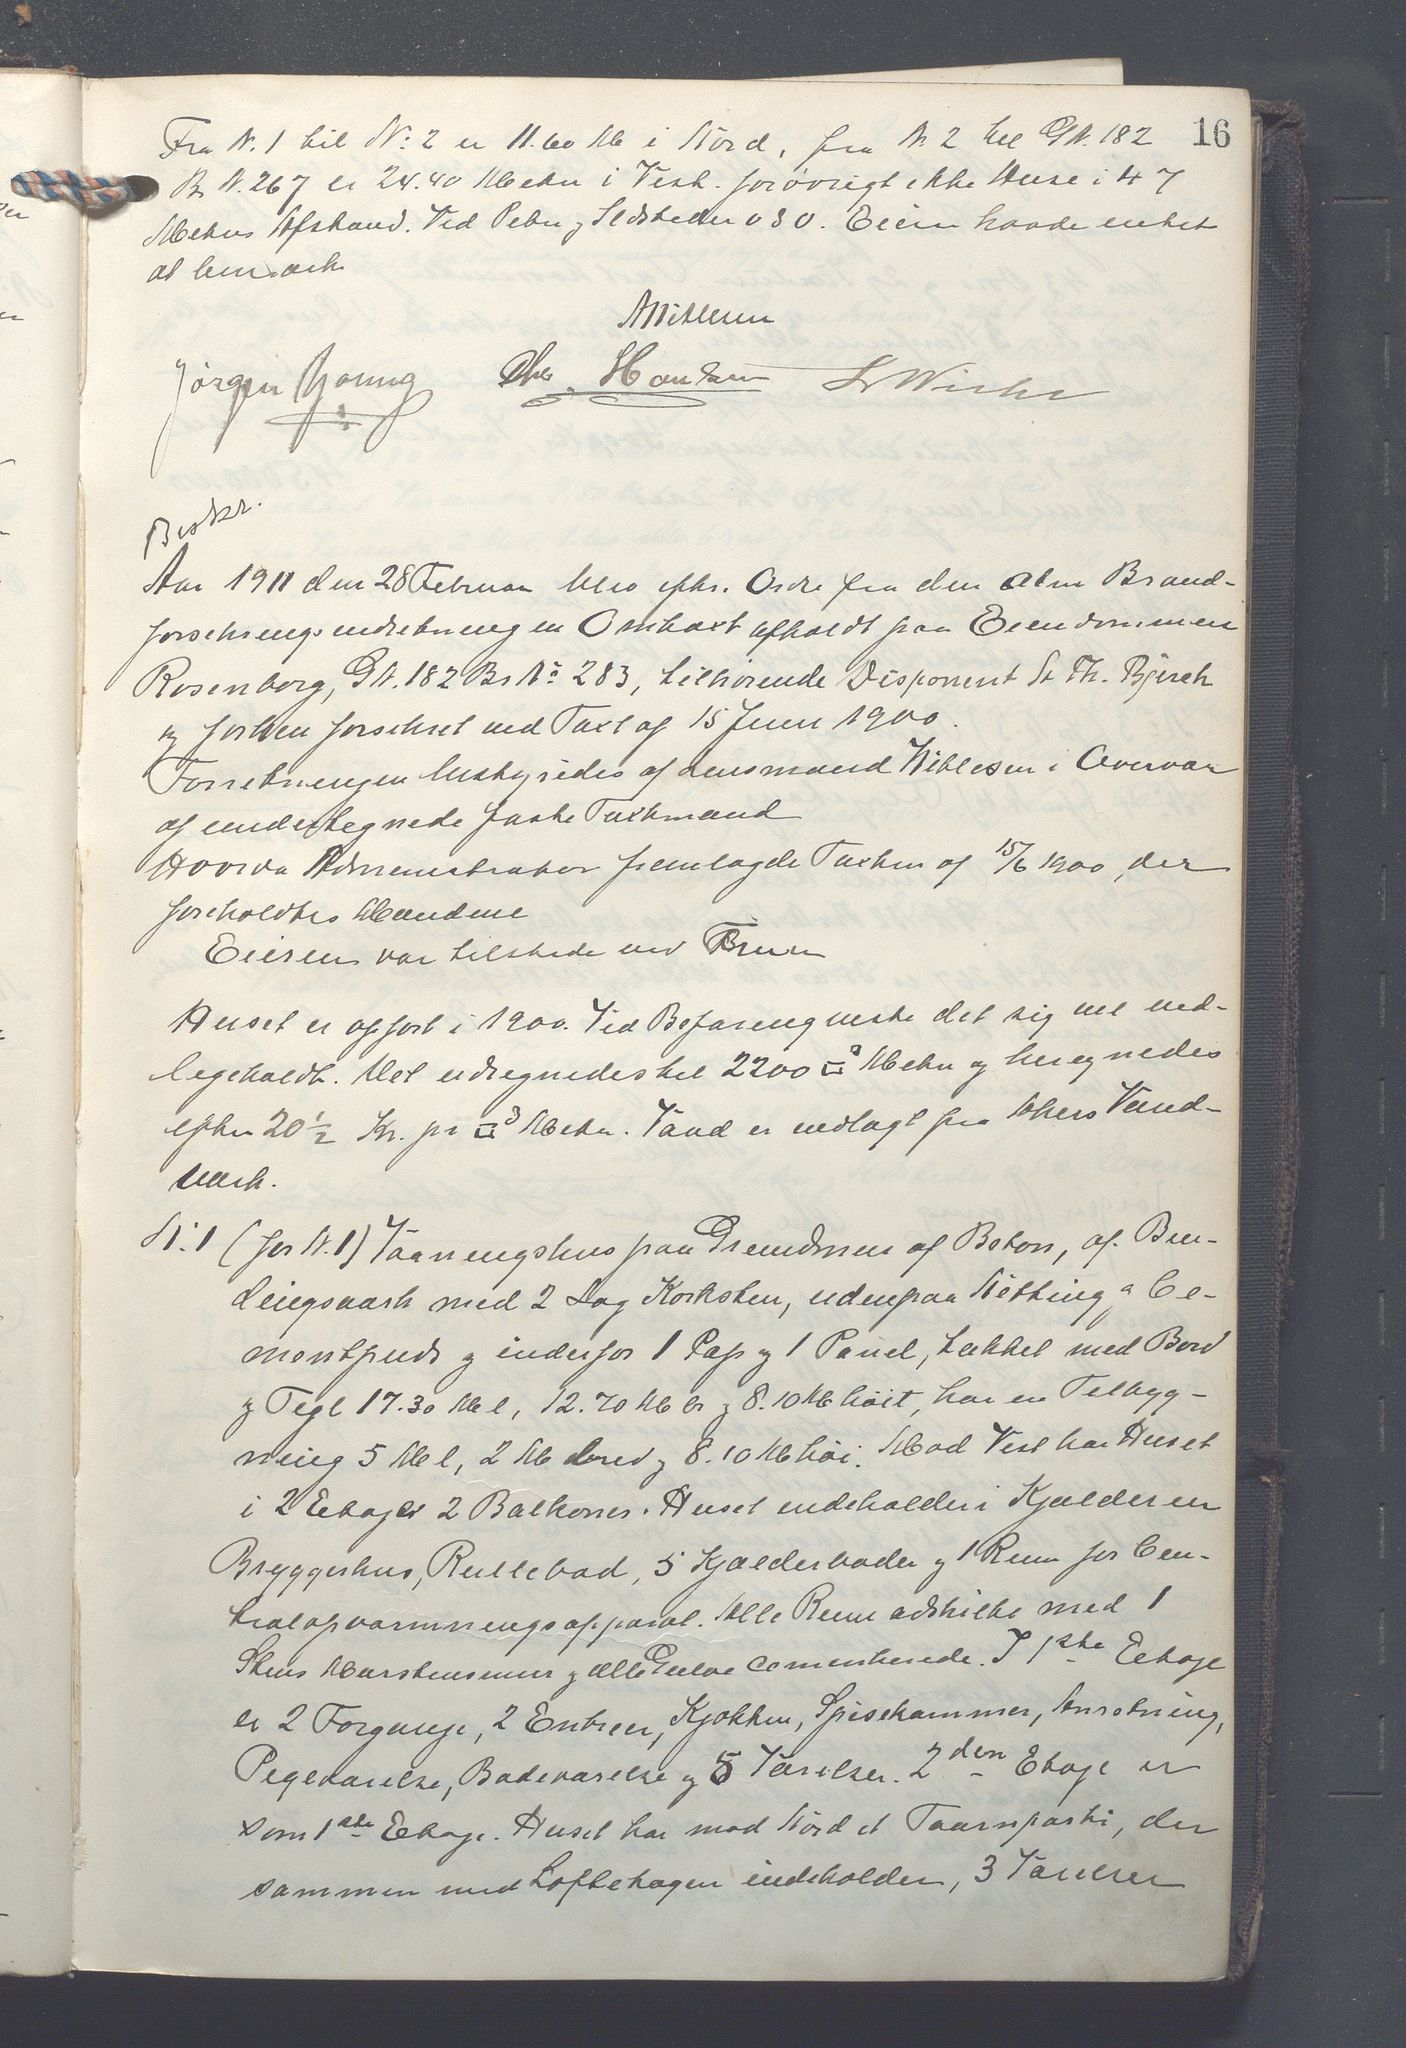 16
Fra N. 1 til N: 2 er 11.60 M i Nord, fra N 2 til GN. 182
Br N. 267 er 24.40 Meter i Vest. forøvrigt ikke Huse i 47
Meters Afstand. Ved Peter og Ildsteder 0 § 0. Eieren havde intet
at bemærke
AWillesen
Jørgen Young Chr. Hansen
Beskr.
Aar 1911 den 28 Februar blev efter Ordre fra den alm Brand-
forsikringsindretning en Omtaxt afholdt paa Eiendommen
Rosenborg, GN. 182 Br No 283, tilhørende Disponent St Th. Bjerck
og forhen forsikret ved Taxt af 15 Juni 1900.
Forretningen bestyredes af Lensmand Willesen i Overvær
af undertegnede faste Taxtmænd
Hoveda Administrator fremlagde Taxten af 15/6 1900, der
foreholdtes Mændene
Eieren var tilstede ved Fruen
Huset er opført i 1900. Ved Befaring viste det sig vel ved-
ligeholdt. Det udregnedes til 2200 □3 Meter og beregnedes
efter 20 1/2 Kr. pr □3 Meter. Vand er indlagt fra Akers Vand-
værk.
N: 1 (før N. 1) Vaaningshus paa Grundmur af Beton, af Bin-
dingsværk med 2 Lag Korksten, udenpaa Netting og Ce-
mentpuds og indenfor 1 Pap og 1 Panel, tækket med Bord
og Tegl 17.30 M l, 12.70 M br og 8.10 M høit, har en Tilbyg-
ning 5 M l, 2 M bred og 8.10 M høi. Mod Vest har Huset
i 2 Etager 2 Balkoner. Huset indeholder i Kjælderen
Bryggerhus, Rullebod, 5 Kjælderboder og 1 Rum for Cen-
tralopvarmningsapparat. Alle Rum adskilte med 1
Stens Murstensmur og alle Gulve cementerede. I 1ste Etage
er 2 Forgange, 2 Entreer, Kjøkken, Spisekammer, Anretning,
Pigeværelse, Badeværelse og 5 Værelser. 2den Etage er
som 1ste Etage. Huset har mod Nord et Taarnparti, der
sammen med Loftetagen indeholder, 3 Værelser